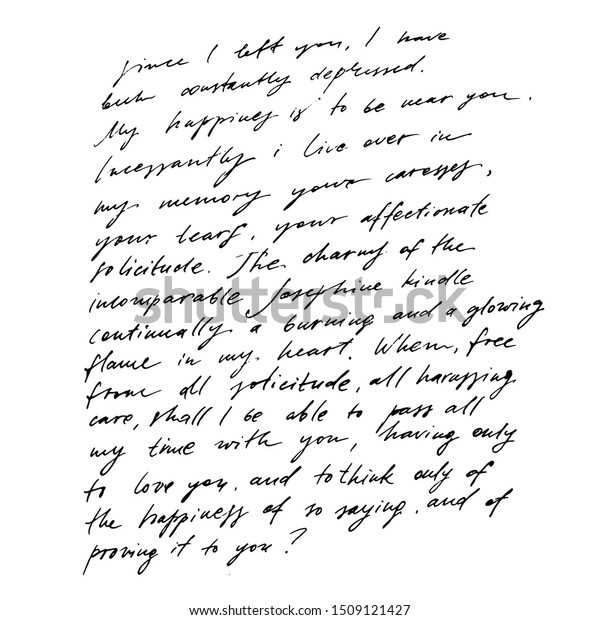 since I left you, I have
been constantly depressed.
My happiness is to be near you.
Incessantly i live over in
my memory your caresses,
your tears, your affectionate
solicitude. The charms of the
incomparable Josephine kindle
continually a burning and a glowing
flame in my heart. When, free
from all solicitude, all harassing
care, shall I be able to pass all
my time with you, having only
to love you, and to think only of
the happiness of so saying, and of
proving it to you?
shutterstock
shutterstock.com · 1509121427